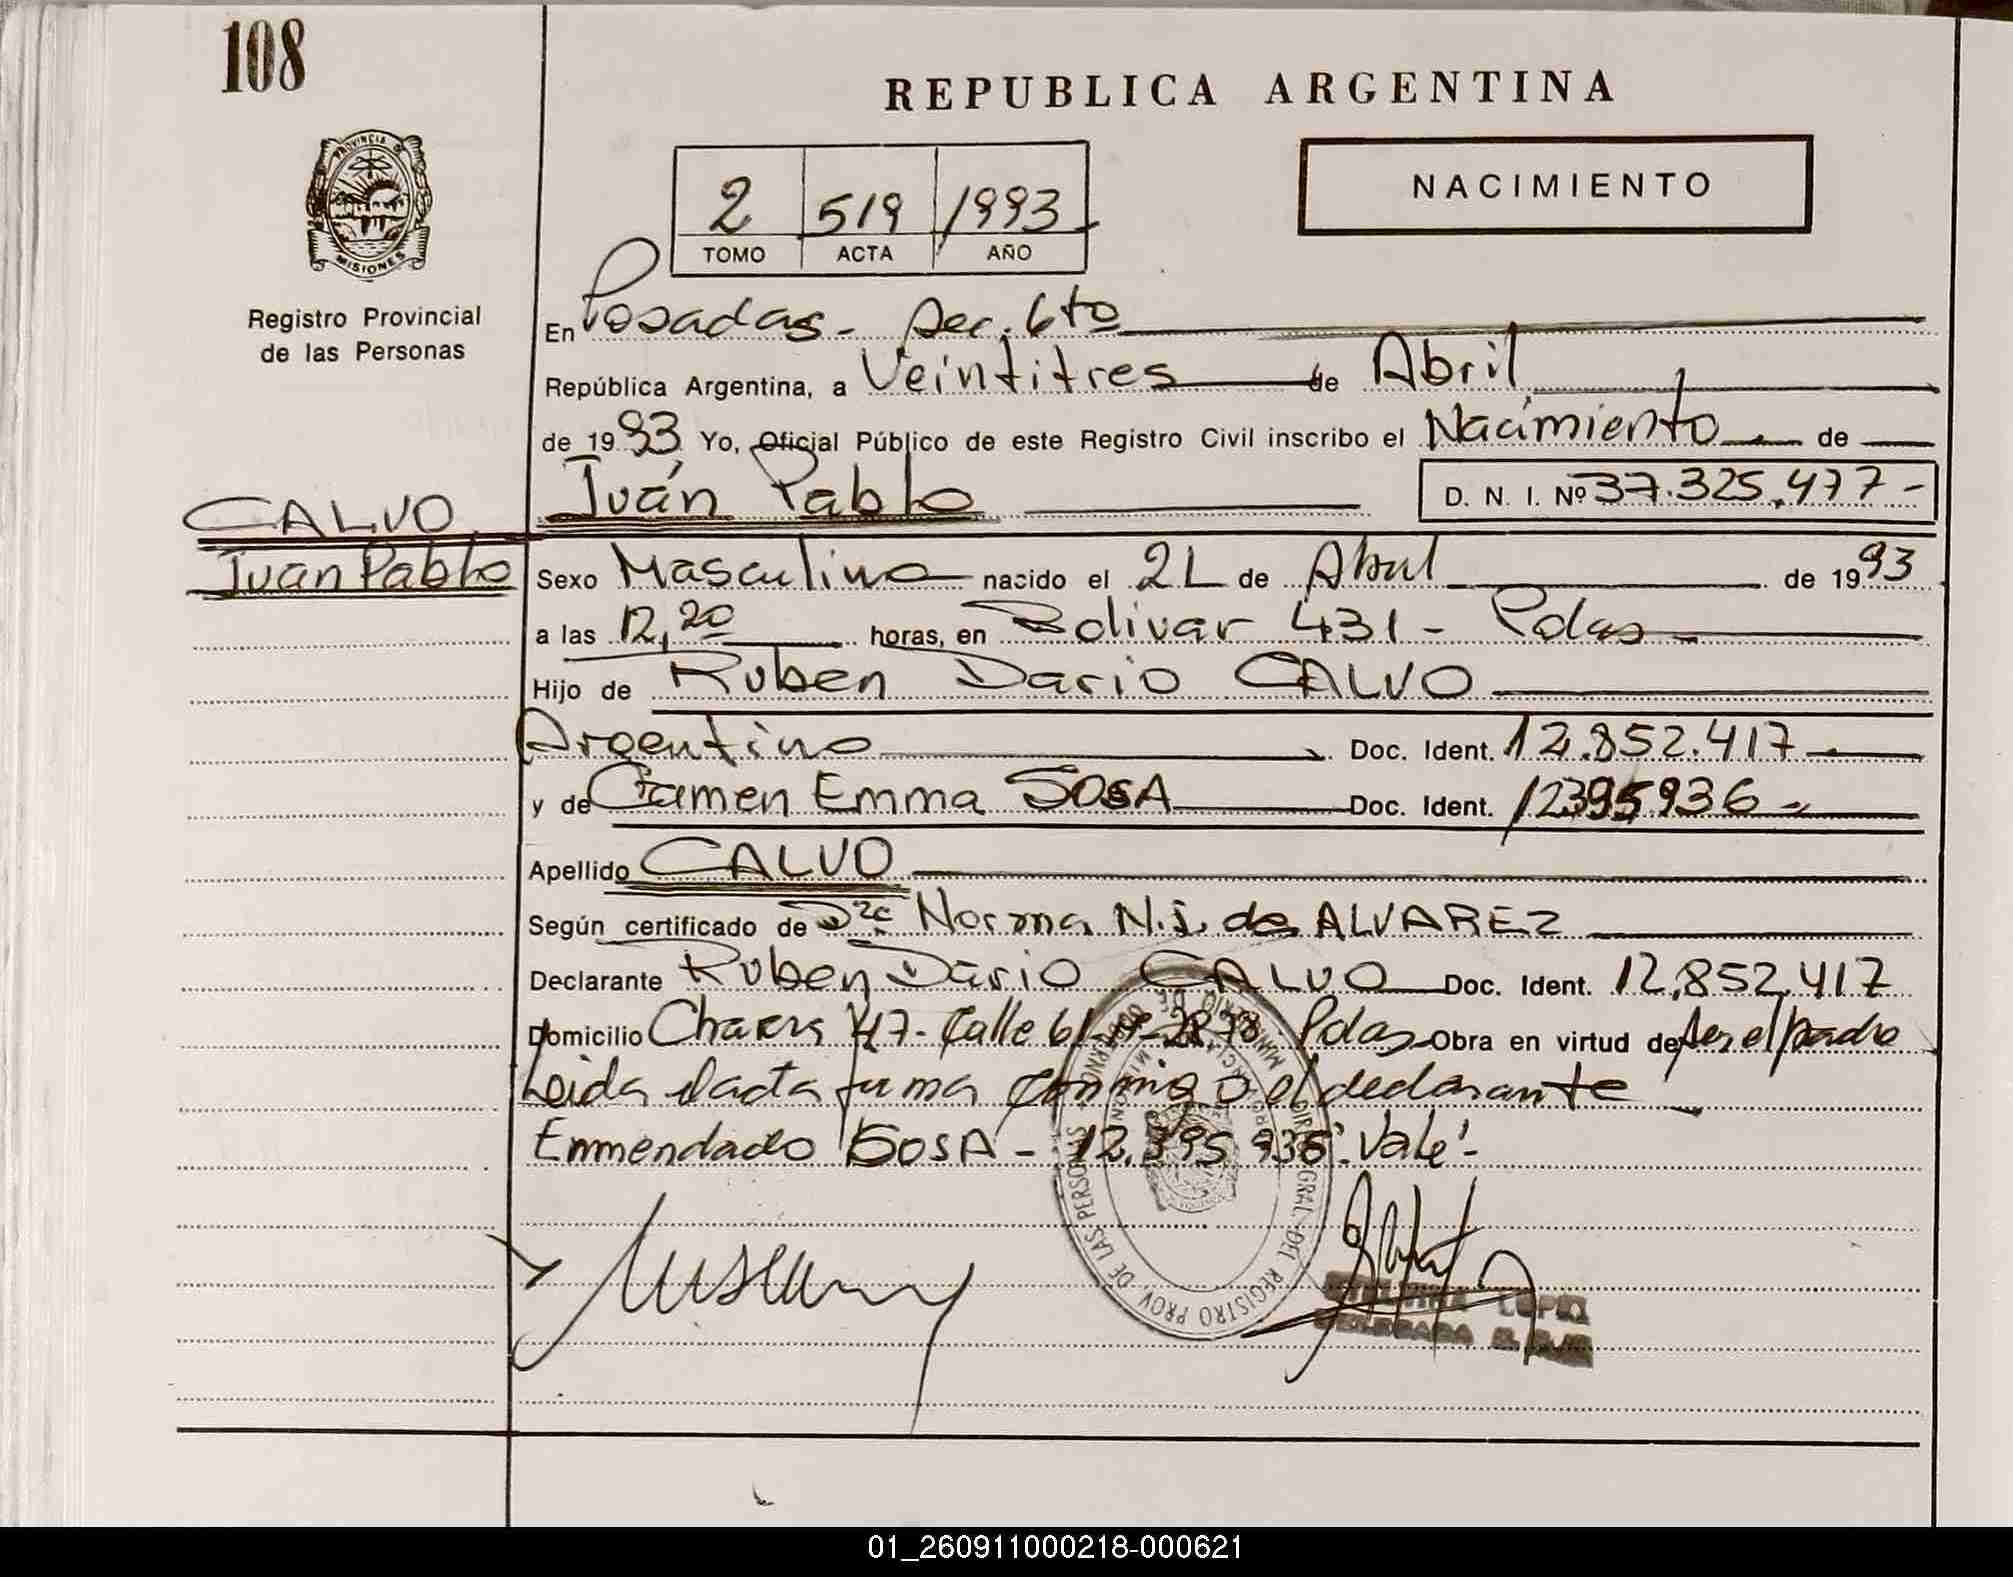 108
REPUBLICA ARGENTINA
PROVINCIA DE
MISIONES
NACIMIENTO
2 519 1993
TOMO ACTA AÑO
Registro Provincial
de las Personas
En Posadas - Sec. 6to
República Argentina, a Veintitres de Abril
de 1993 Yo, Oficial Público de este Registro Civil inscribo el Nacimiento de
Juán Pablo D. N. I. Nº 37.325.477-
CALVO
Juan Pablo
Sexo Masculino nacido el 21 de Abril de 1993
a las 12,20 horas, en Bolivar 431 - Pdas
Hijo de Ruben Dario CALVO
Argentino Doc. Ident. 12.852.417
y de Carmen Emma SOSA Doc. Ident. 12395936-
Apellido CALVO
Según certificado de Norma N. de ALVAREZ
Declarante Ruben Dario CALVO Doc. Ident. 12.852.417
Domicilio 47- Calle Pdas Obra en virtud de ser el padre
Leida el acta firma conmigo el declarante
Enmendado SOSA - 12.395 936: Vale'-
DIR. GRAL. DEL REGISTRO PROV. DE LAS PERSONAS
MINISTERIO DE GOBIERNO
LOPEZ
DELEGADA
01_260911000218-000621